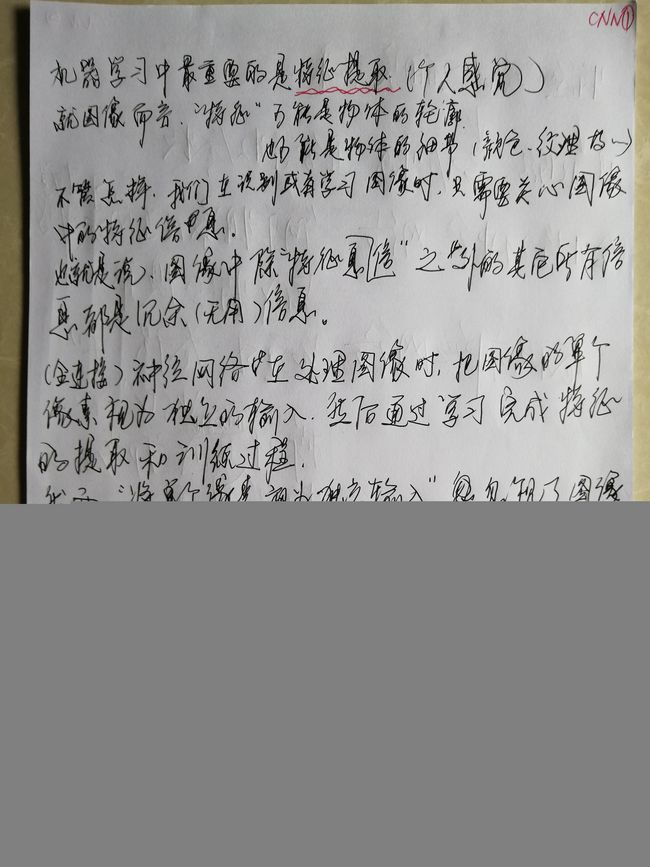 CNN①
机器学习中最重要的是特征提取（个人感觉）
就图像而言，“特征”可能是物体的轮廓
也可能是物体的细节（颜色、纹理
不管怎样，我们在识别或者学习图像时，只需要关心图像
中的特征信息。
也就是说，图像中除“特征息信”之外的其它所有信
息都是冗余（无用）信息。
（全连接）神经网络中在处理图像时，把图像的单个
像素视为独立的输入，然后通过学习完成特征
的提取和训练过程.
然而“将单个像素视为独立输入”